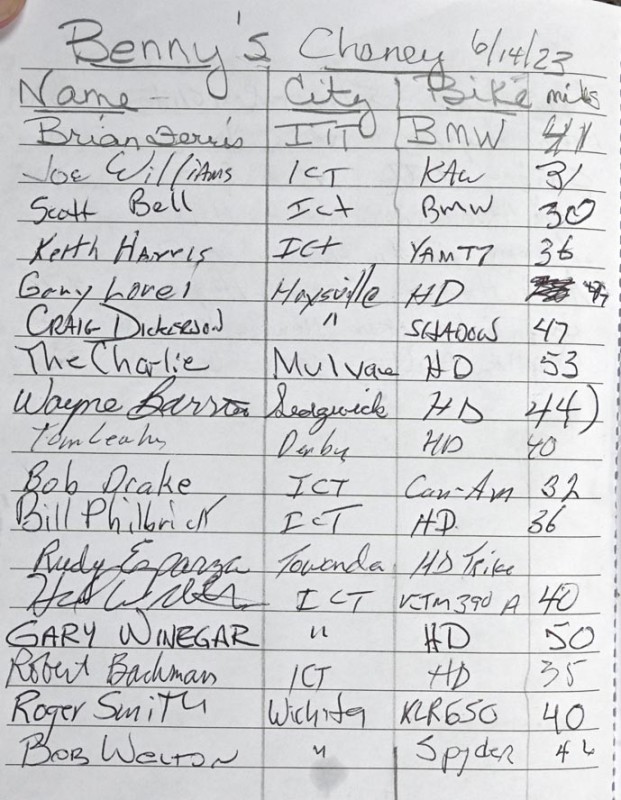 Benny's Cheney 6/14/23
Name - City Bike miles
Brian Ferris ICT BMW 41
Joe Williams ICT KAW 31
Scott Bell Ict BMW 30
Keith Harris Ict YAMT7 36
Gary Lovel Haysville HD
Craig Dickerson " SHADOW 47
The Charlie Mulvane HD 53
Wayne Barston Sedgwick HD 44)
Tom Leahy Derby HD 40
Bob Drake ICT Can-Am 32
Bill Philbrick ICT HD 36
Rudy Esparza Towanda HD Trike
ICT KTM 390 A 40
GARY WINEGAR " HD 50
Robert Bachman ICT HD 35
Roger Smith Wichita KLR650 40
Bob Welton " Spyder